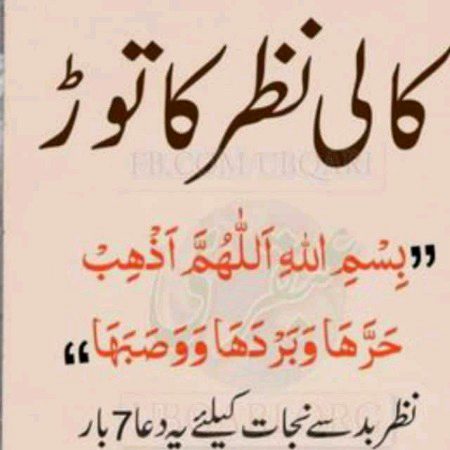 کالی نظر کا توڑ
FB.COM/UBQARI
”بِسْمِ اللهِ اَللّٰهُمَّ اَذْهِبْ
حَرَّهَا وَبَرْدَهَا وَوَصَبَهَا“
نظر بد سے نجات کیلئے یہ دعا 7 بار